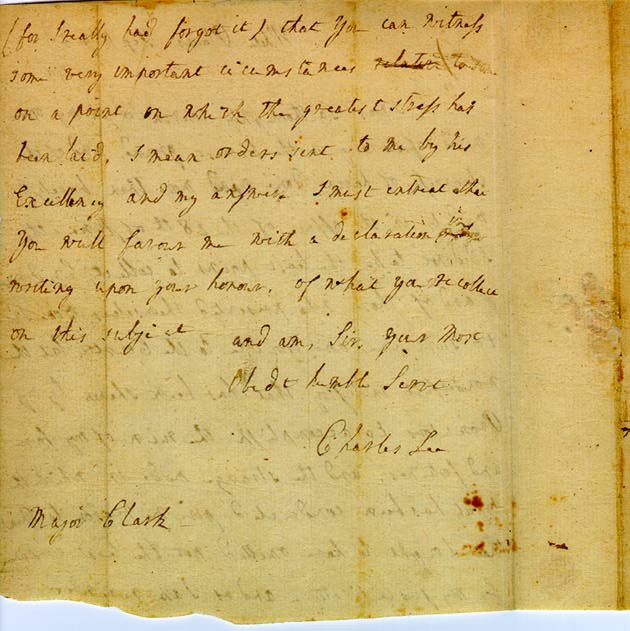 (for I really had forgot it) that You can witness
some very important circumstances relative to
on a point on which the greatest stress has
been laid, I mean orders sent to me by his
Excellency and my answer. I must entreat that
You will favour me with a declaration in
writing upon your honour, of what you recollect
on this subject and am, Sir, Your Most
Obedt humble Servt
Charles Lee
Major Clark